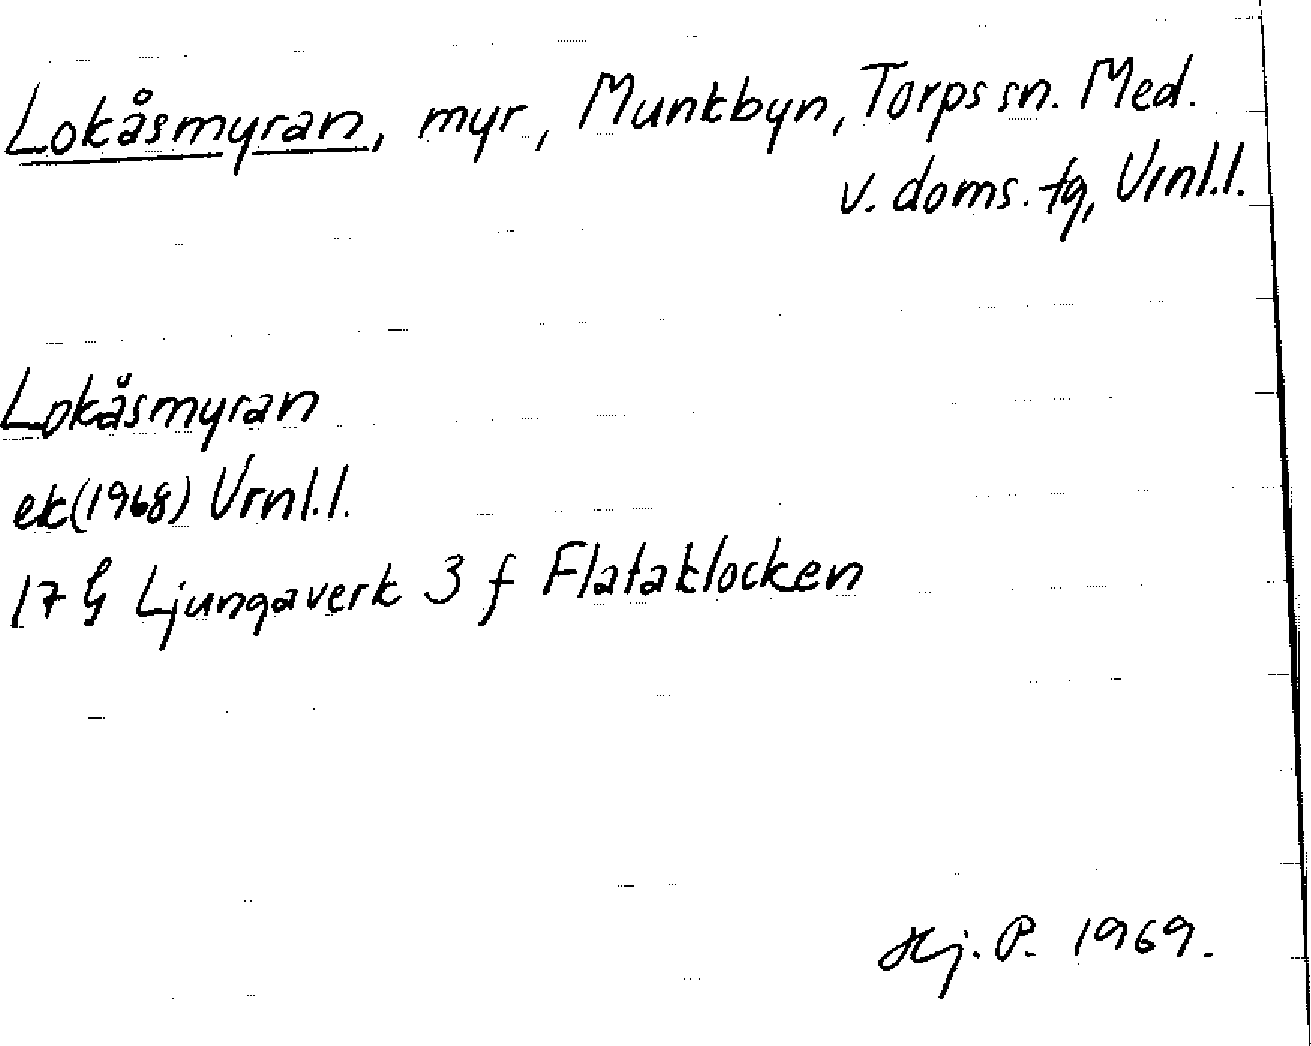 Lokåsmyran, myr, Munkbyn, Torps sn. Med.
v. doms. tg, Vrnl.l.
Lokåsmyran
ek(1968) Vrnl.l.
17 G Ljungaverk 3 f Flataklocken
Hj. P. 1969.